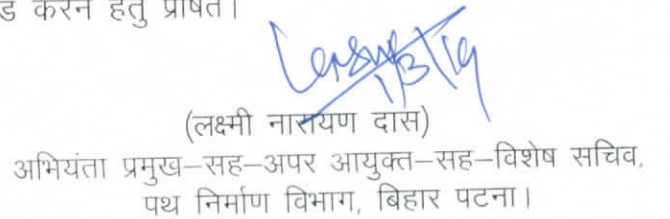 ड करने हेतु प्रेषित।
1/3/19
(लक्ष्मी नारायण दास)
अभियंता प्रमुख–सह–अपर आयुक्त–सह–विशेष सचिव,
पथ निर्माण विभाग, बिहार पटना।